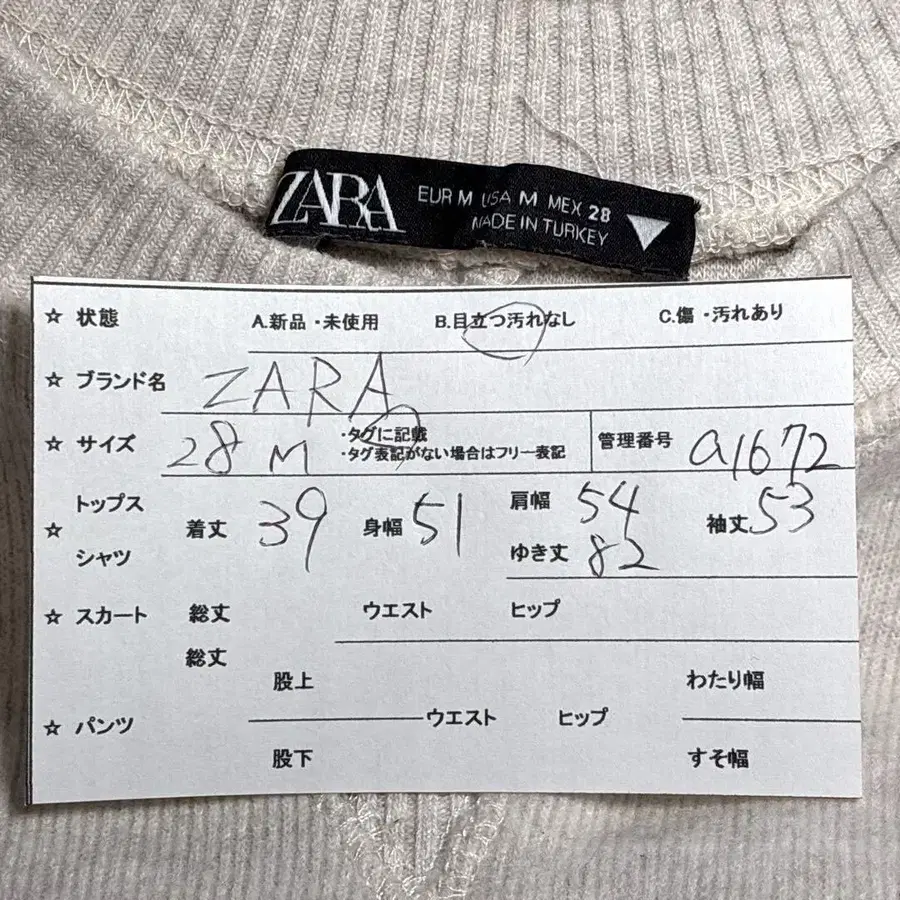 ZARA EUR M USA M MEX 28
MADE IN TURKEY
☆ 状態 A.新品・未使用 B.目立つ汚れなし C.傷・汚れあり
☆ ブランド名 ZARA
☆ サイズ 28 M ・タグに記載 管理番号 a1672
・タグ表記がない場合はフリー表記
☆ トップス シャツ 着丈 39 身幅 51 肩幅 54 袖丈 53
ゆき丈 82
☆ スカート 総丈 ウエスト ヒップ
総丈
股上 わたり幅
☆ パンツ ウエスト ヒップ
股下 すそ幅